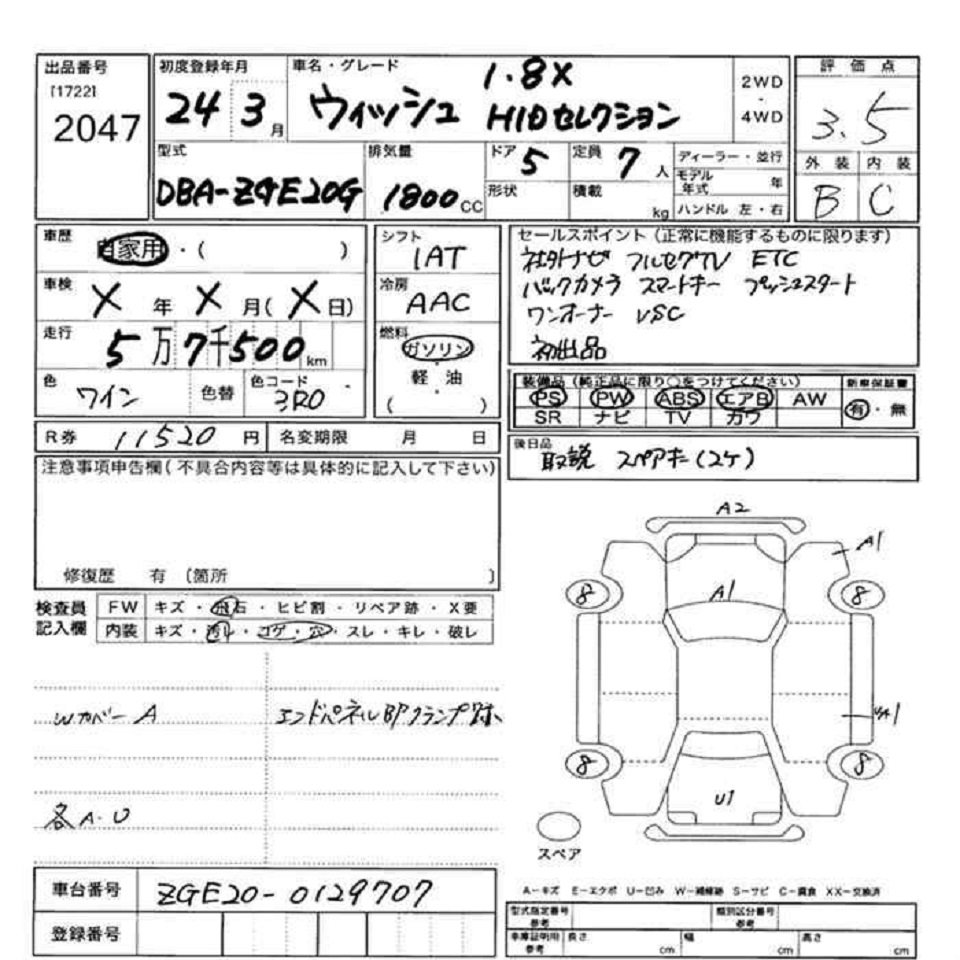 出品番号
[1722]
2047
初度登録年月
24 3月
車名・グレード
1.8X
ウィッシュ HIDセレクション
2WD
・
4WD
評価点
3.5
外装 内装
B C
型式
DBA-ZGE20G
排気量
1800cc
ドア 5
形状
定員 7人
積載 kg
ディーラー・並行
モデル年式 年
ハンドル 左・右
車歴
自家用・( )
車検
X年X月(X日)
走行
5万7千500km
色
ワイン
色替
色コード
3R0
シフト
1AT
冷房
AAC
燃料
ガソリン
軽油
( )
R券 11520円
名変期限 月 日
セールスポイント(正常に機能するものに限ります)
社外ナビ フルセグTV ETC
バックカメラ スマートキー プッシュスタート
ワンオーナー VSC
初出品
装備品(純正品に限り○をつけてください)
PS PW ABS エアB AW
SR ナビ TV カワ
新車保証書
有・無
後日品
取説 スペアキー(2ケ)
注意事項申告欄(不具合内容等は具体的に記入して下さい)
修復歴 有(箇所 )
検査員
記入欄
FW キズ・飛石・ヒビ割・リペア跡・X要
内装 キズ・汚れ・コゲ・穴・スレ・キレ・破レ
Wカバー A
エンドパネルBPクランプ跡
各A・U
A2
A1
A1
8
8
A1
8
8
U1
スペア
A-キズ E-エクボ U-凹み W-補修跡 S-サビ C-腐食 XX-交換済
車台番号 ZGE20-0129707
登録番号
型式指定番号
参考
類別区分番号
参考
車庫証明用
参考
長さ cm
幅 cm
高さ cm